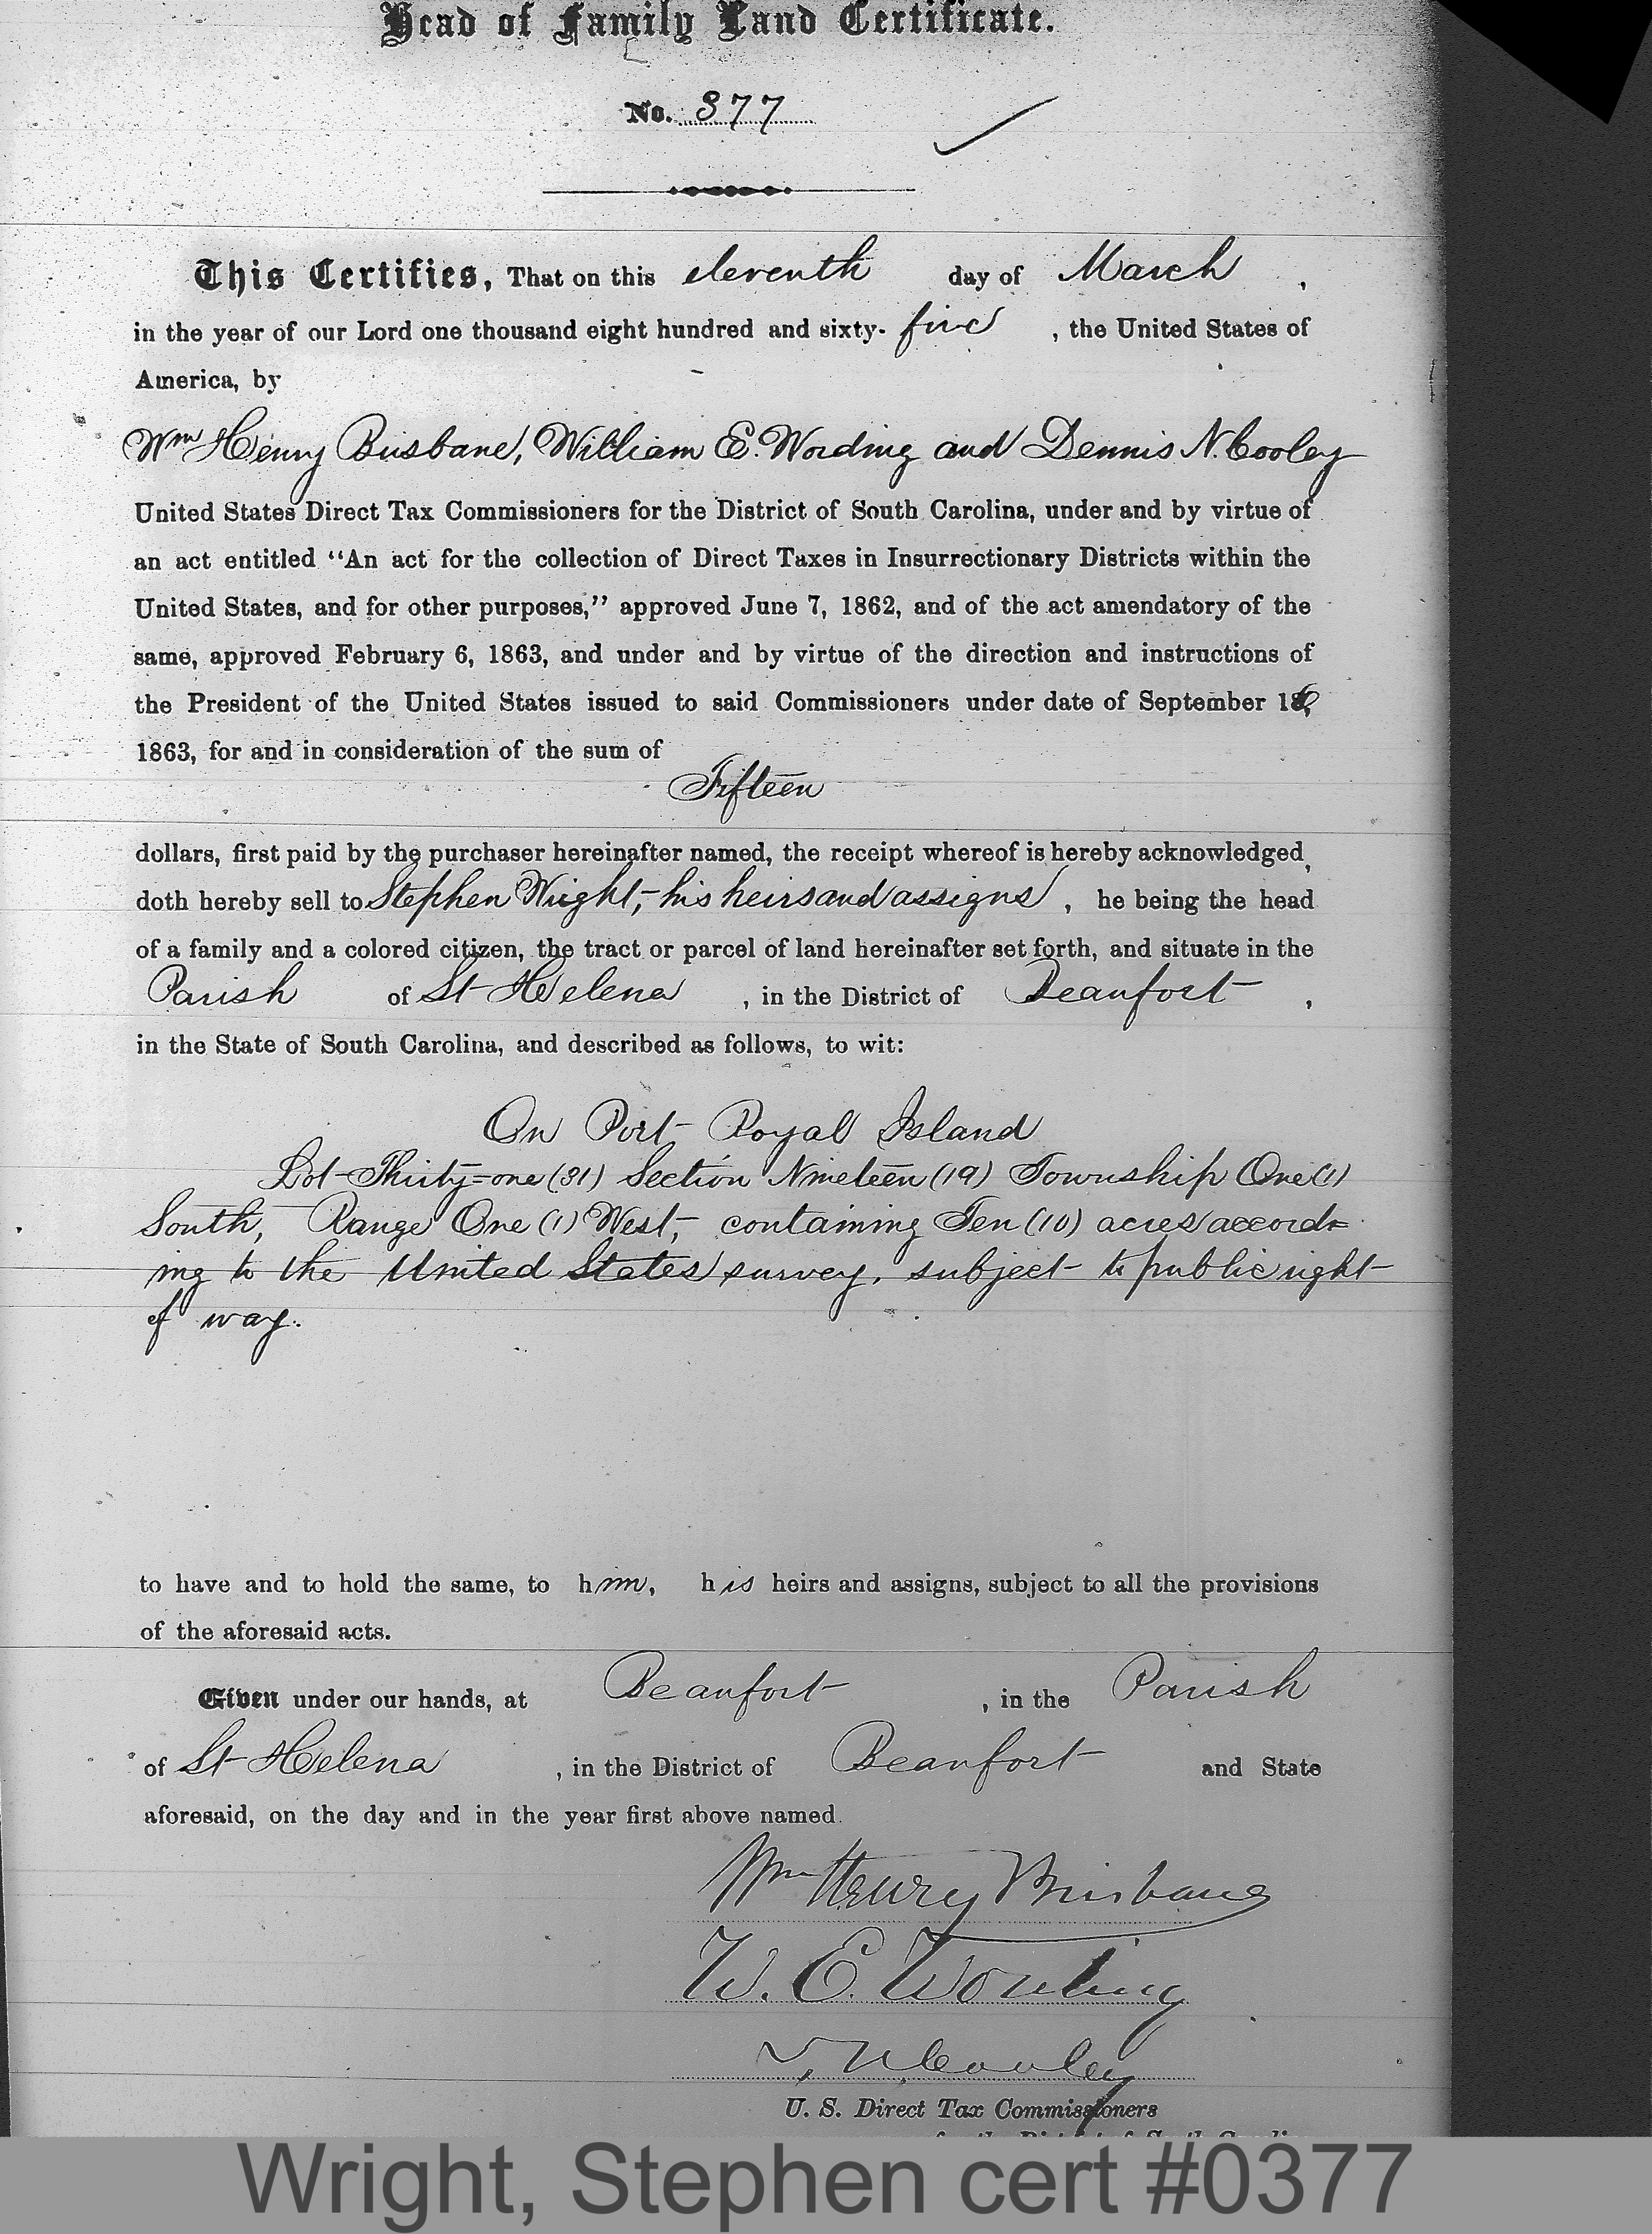 Head of Family Land Certificate.
No. 377
This Certifies, That on this eleventh day of March,
in the year of our Lord one thousand eight hundred and sixty-five, the United States of
America, by
Wm Henry Brisbane, William E. Wording and Dennis N. Cooley
United States Direct Tax Commissioners for the District of South Carolina, under and by virtue of
an act entitled "An act for the collection of Direct Taxes in Insurrectionary Districts within the
United States, and for other purposes," approved June 7, 1862, and of the act amendatory of the
same, approved February 6, 1863, and under and by virtue of the direction and instructions of
the President of the United States issued to said Commissioners under date of September 16,
1863, for and in consideration of the sum of
Fifteen
dollars, first paid by the purchaser hereinafter named, the receipt whereof is hereby acknowledged,
doth hereby sell to Stephen Wright, his heirs and assigns, he being the head
of a family and a colored citizen, the tract or parcel of land hereinafter set forth, and situate in the
Parish of St Helena, in the District of Beaufort,
in the State of South Carolina, and described as follows, to wit:
On Port Royal Island
Lot Thirty=one (31) Section Nineteen (19) Township One (1)
South, Range One (1) West, containing Ten (10) acres accord=
ing to the United States survey, subject to public right
of way.
to have and to hold the same, to him, his heirs and assigns, subject to all the provisions
of the aforesaid acts.
Given under our hands, at Beaufort, in the Parish
of St Helena, in the District of Beaufort and State
aforesaid, on the day and in the year first above named.
Wm Henry Brisbane
W. E. Wording
D. N. Cooley
U. S. Direct Tax Commissioners
for the District of South Carolina
Wright, Stephen cert #0377